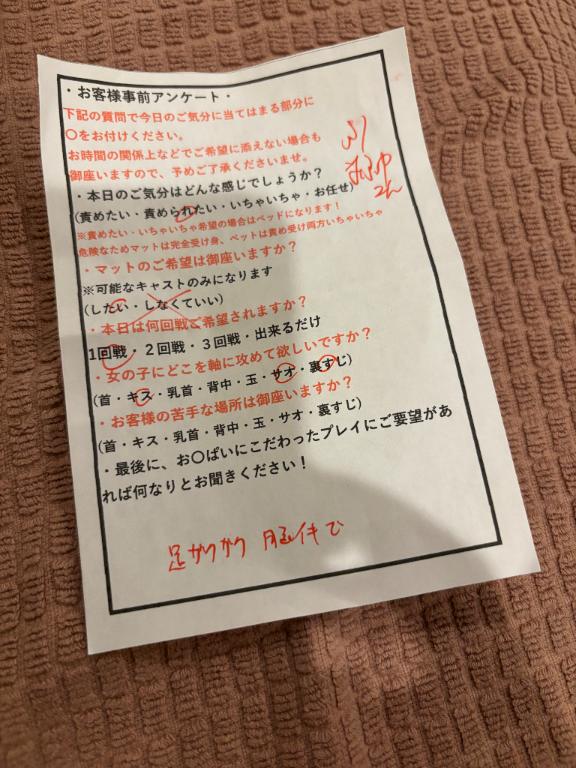 ・お客様事前アンケート・
下記の質問で今日のご気分に当てはまる部分に
〇をお付けください。
お時間の関係上などでご希望に添えない場合も
御座いますので、予めご了承くださいませ。
・本日のご気分はどんな感じでしょうか?
(責めたい・責められたい・いちゃいちゃ・お任せ)
※責めたい・いちゃいちゃ希望の場合はベッドになります!
危険なためマットは完全受け身、ベットは責め受け両方いちゃいちゃ
・マットのご希望は御座いますか?
※可能なキャストのみになります
(したい・しなくていい)
・本日は何回戦ご希望されますか?
1回戦・2回戦・3回戦・出来るだけ
・女の子にどこを軸に攻めて欲しいですか?
(首・キス・乳首・背中・玉・サオ・裏すじ)
・お客様の苦手な場所は御座いますか?
(首・キス・乳首・背中・玉・サオ・裏すじ)
・最後に、お〇ぱいにこだわったプレイにご要望があ
れば何なりとお聞きください!
足